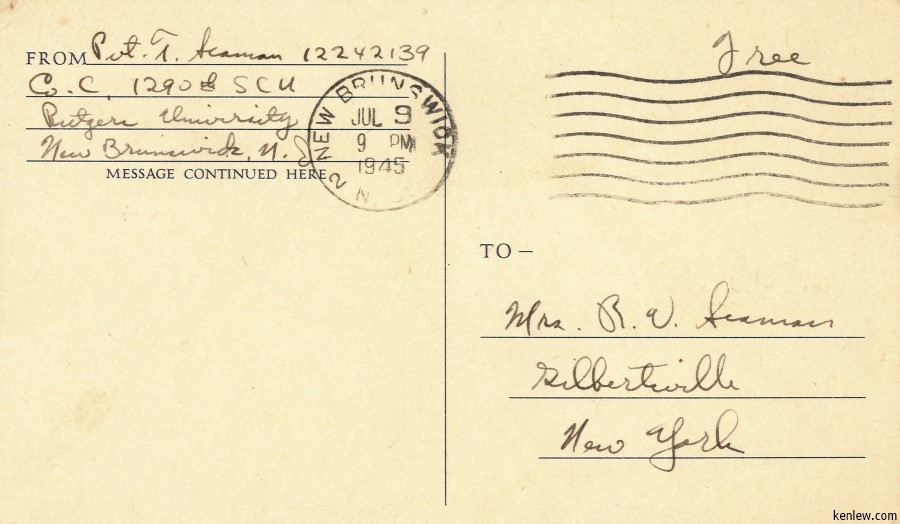 FROM Pvt. T. Seaman 12242139
Co. C, 1290th SCU
Rutgers University
New Brunswick, N. J.
MESSAGE CONTINUED HERE
NEW BRUNSWICK
JUL 9
9 PM
1945
2 N
Free
TO —
Mrs. R. V. Seaman
Gilbertsville
New York
kenlew.com